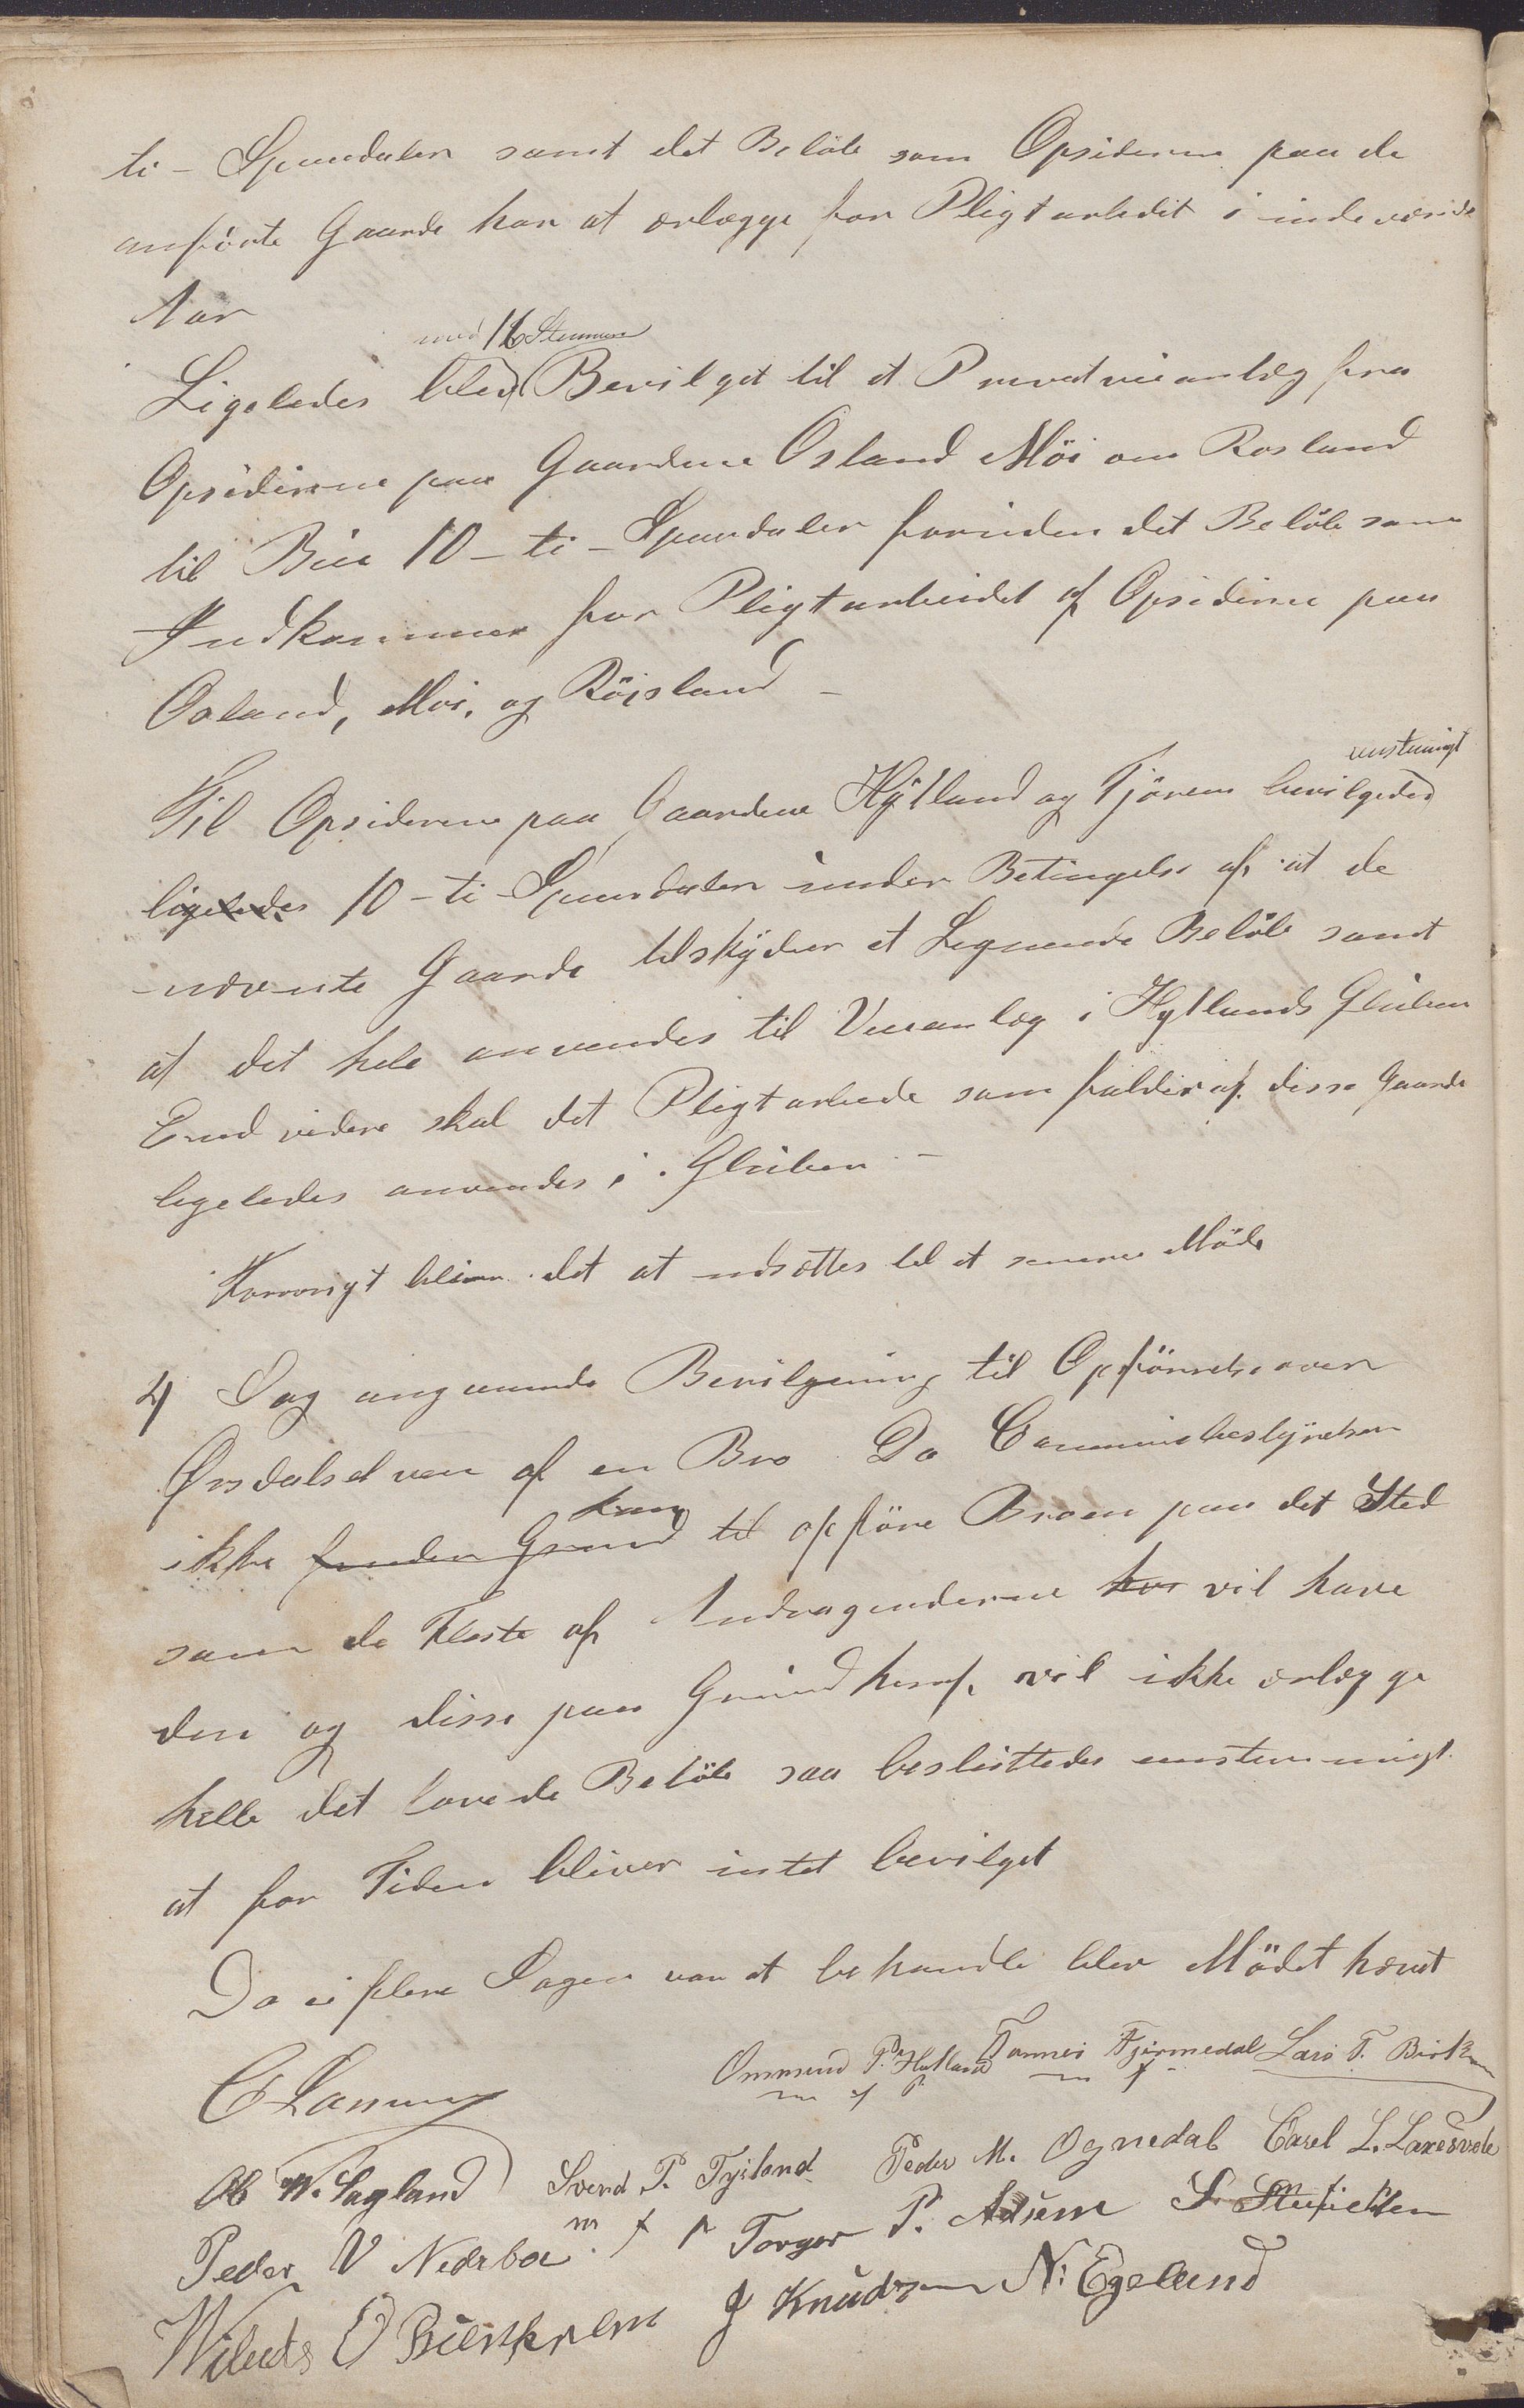 ti - Spesidaler samt det Beløb som Opsiderne paa de
anførte Gaarde har at erlægge for Pligtarbedet i indeværende
Aar
med 16 Stemmer
Ligeledes blev Bevilget til et Privatveianlæg fra
Opsiderne paa Gaardene Osland Möi om Rosland
til Bue 10 - ti - Spesidaler foruden det Beløb som
Indkommer for Pligtarbeidet af Opsiderne paa
Osland, Moi, og Röisland -
enstemigt
Til Opsiderne paa Gaardene Hÿtland og Tjörem bevilgedes
ligeledes 10 - ti - Spesidaler under Betingelse af at de
nævnte Gaarde tilskÿder et Lignende Beløb samt
at det hele anvendes til Veianlæg i Hytlands Gluben
End videre skal det Pligtarbede som falder af disse Gaarde
ligeledes anvendes i Gluben -
Forövrigt bliver det at udsættes til et senere Möde
4 Sag angaaende Bevilgning til Opförelse over
Örsdalselven af en Bro Da Communebestÿrelsen
kan
ikke finder Grund til opföre Broen paa det Sted
som de Fleste af Andragenderne har vil have
den og disse paa Grund heraf vil ikke erlægge
helle det lovede Beløb saa besluttedes enstemmigt
at for Tiden bliver intet bevilget
Da ei flere Sager var at behandle blev Mödet hævet
Ommund P. Hytland Tønnes Fjermedal Lars T. Birk
m f P. m f
Ole N. Sagland Svend P. Tysland Peder M. Ognedal Carel L. Laxesvele
m f p
Peder V Nedrbø Torger P. Aasen S
O Bierkrem J Knudsen N. Egeland